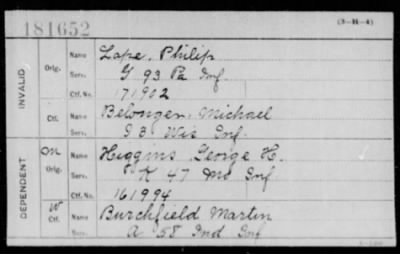 181652
(3-H-4)
INVALID
Orig.
Name Lape, Philip
Serv. G 93 Pa Inf.
Ctf. No. 171902
Ctf.
Name Belonger, Michael
Serv. I 3 Wis Inf.
DEPENDENT
On
Orig.
Name Huggins George H.
Serv. K 47 Mo Inf
Ctf. No. 161994
W
Ctf.
Name Burchfield Martin
Serv. A 58 Ind Inf